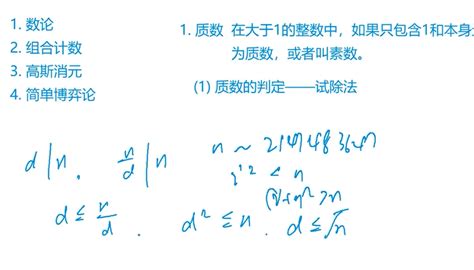 1. 数论
2. 组合计数
3. 高斯消元
4. 简单博弈论
1. 质数 在大于1的整数中，如果只包含1和本身
为质数，或者叫素数。
(1) 质数的判定——试除法
d | n . n/d | n n ~ 2147483647
i^2 ≤ n
d ≤ n/d . d² ≤ n . d ≤ √n